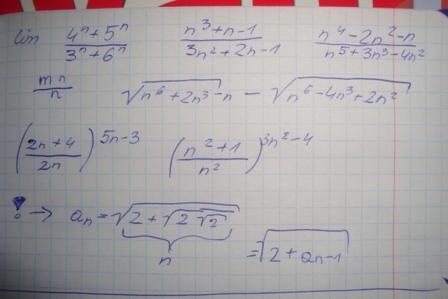 lim (4^n+5^n)/(3^n+6^n) (n^3+n-1)/(3n^2+2n-1) (n^4-2n^2-n)/(n^5+3n^3-4n^2)
mn/n √(n^6+2n^3-n) - √(n^6-4n^3+2n^2)
((2n+4)/2n)^(5n-3) ((n^2+1)/n^2)^(3n^2-4)
! → a_n = √(2+√(2√2))
n = √(2+a_n-1)